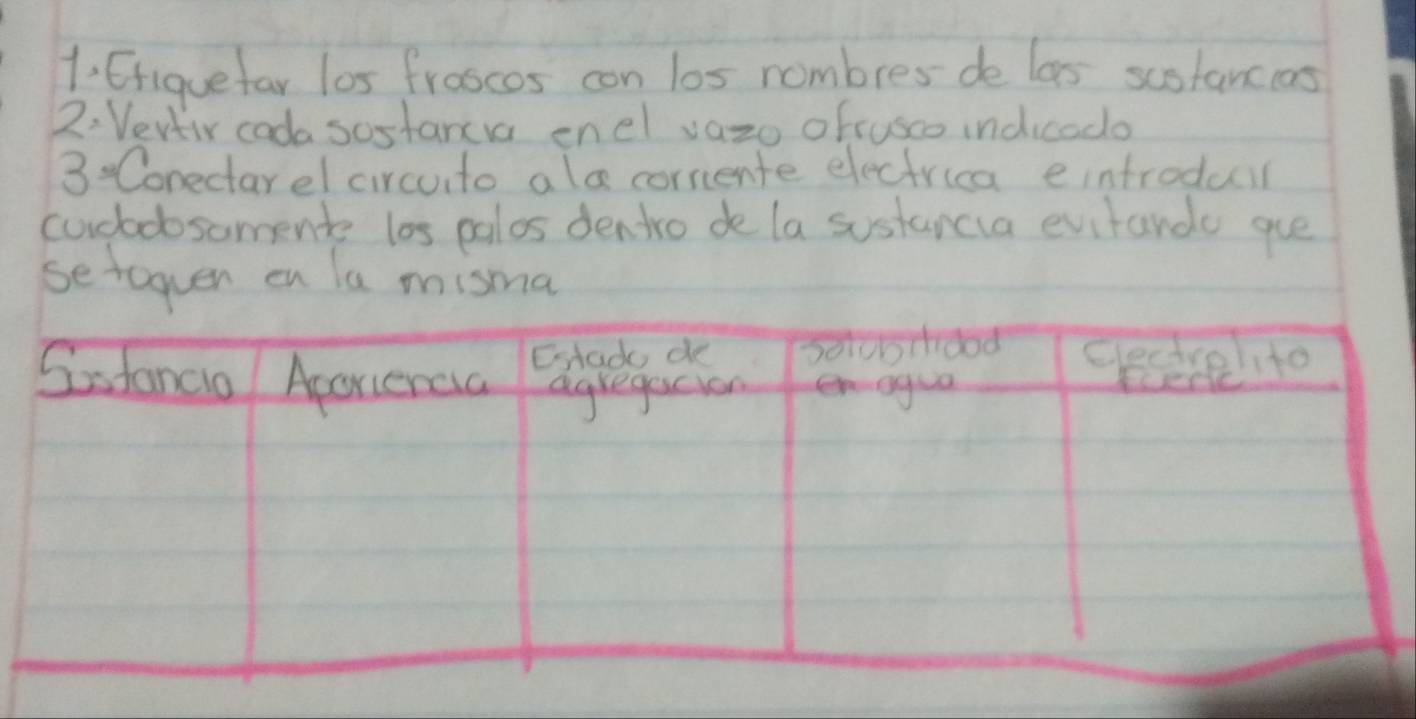 1. Etiquetar los frascos con los nombres de las sustancias
2. Vertir cada sustancia en el vazo o frusco indicado
3. Conectar el circuito a la corriente electrica e introducir
cuidadosamente los palos dentro de la sustancia evitando que
se toquen en la misma
Sustancia Apariencia Estado de agregacion Solubilidad en agua Electrolito fuerte